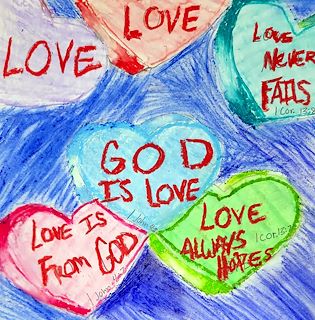 LOVE
LOVE
LOVE
NEVER
FAILS
1 Cor. 13:8
GOD
IS LOVE
LOVE IS
FROM GOD
LOVE
ALWAYS
HOPES
1 Cor. 13:7